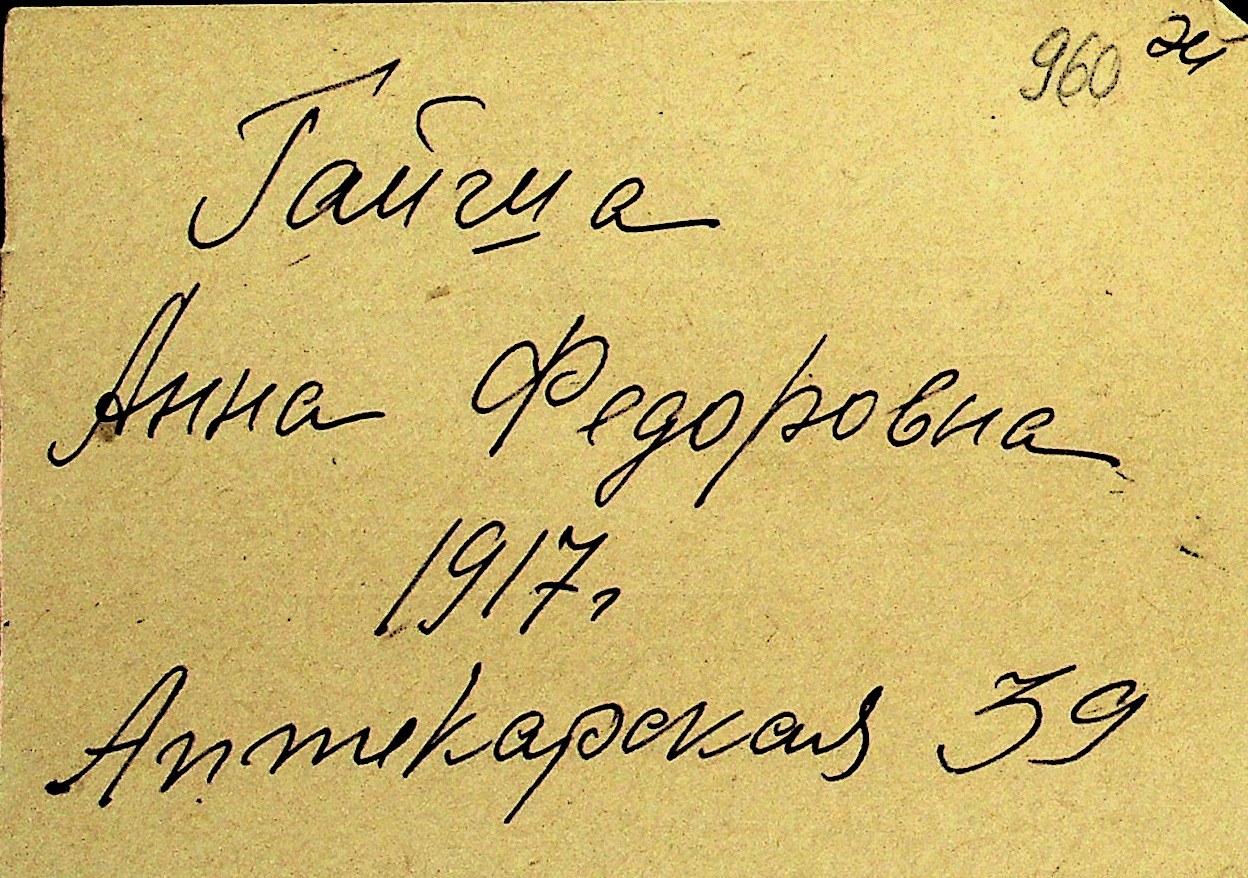 960
Гайгша
Анна Федоровна
1917г
Аптекарская 39